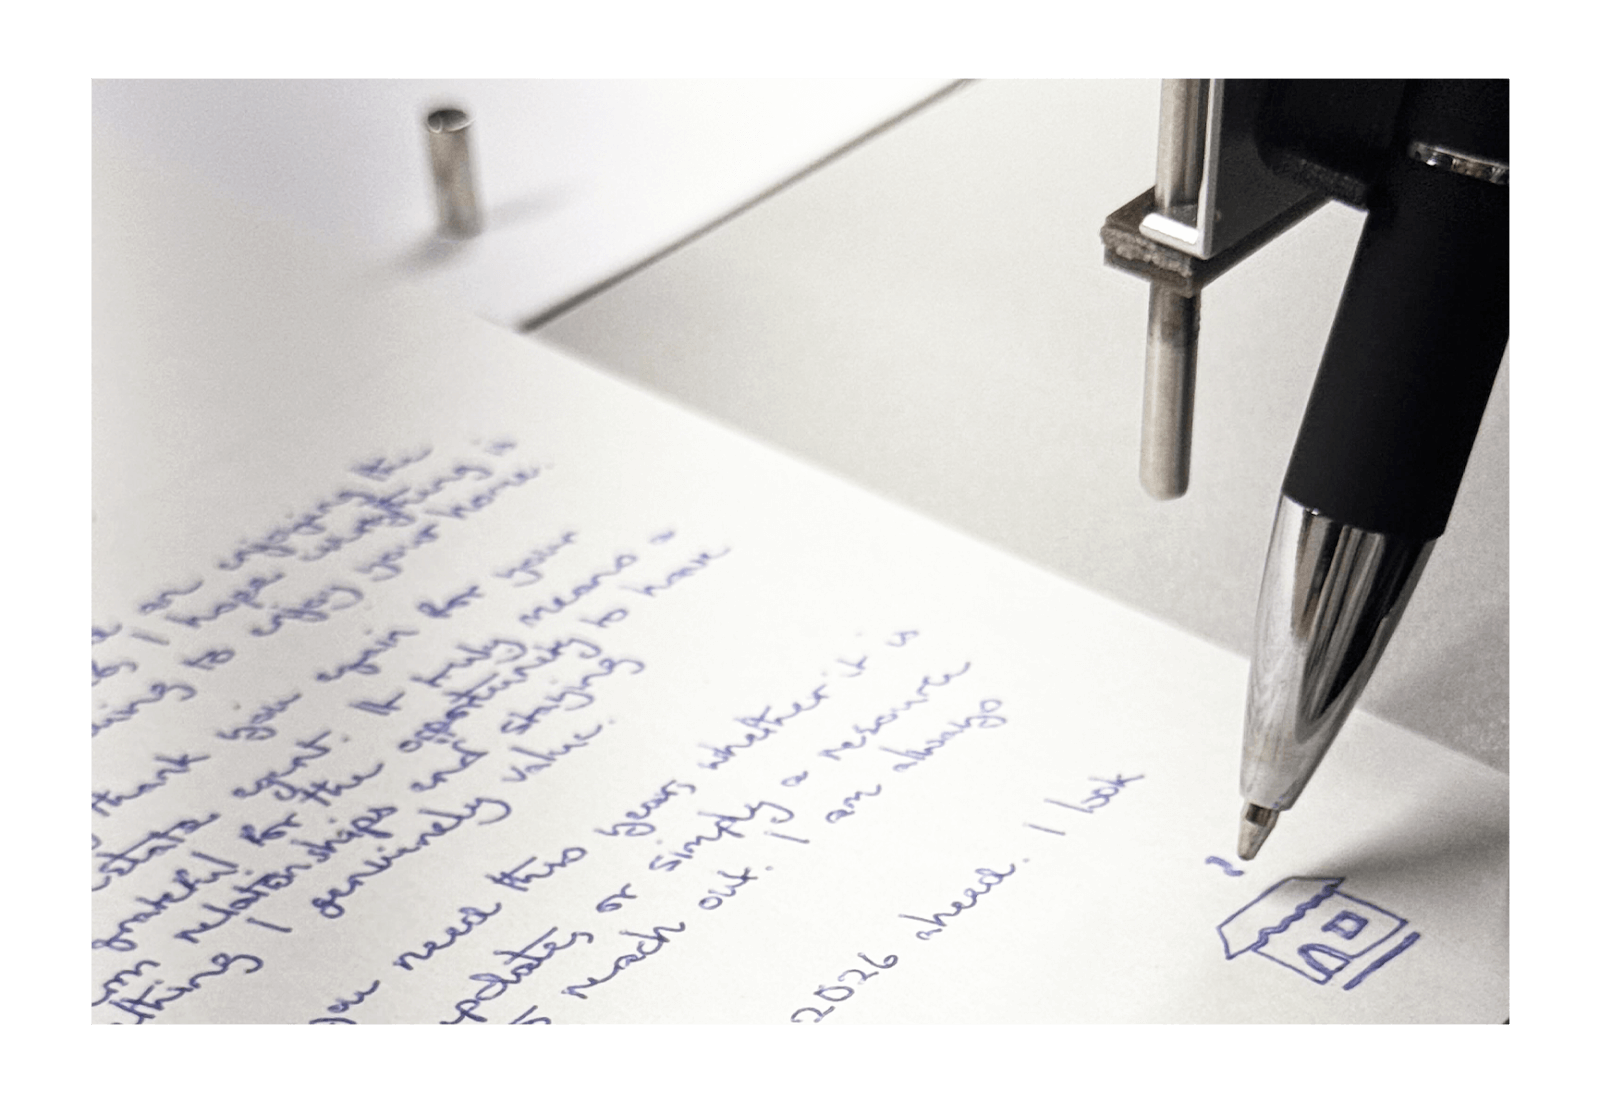 am enjoying the
I hope everything is
to enjoy your home.
thank you again for your
estate agent. It truly means a
grateful for the opportunity to have
relationships and staying
thing I genuinely value.
you need this year whether it is
updates or simply a resource
reach out. I am always
2026 ahead. I look